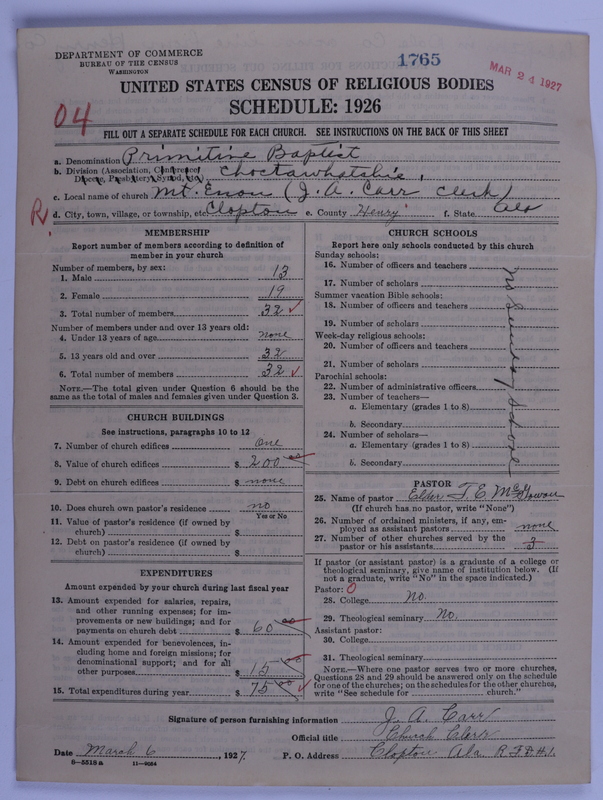 DEPARTMENT OF COMMERCE
BUREAU OF THE CENSUS
WASHINGTON
1765
MAR 24 1927
UNITED STATES CENSUS OF RELIGIOUS BODIES
SCHEDULE: 1926
04
FILL OUT A SEPARATE SCHEDULE FOR EACH CHURCH. SEE INSTRUCTIONS ON THE BACK OF THIS SHEET
a. Denomination Primitive Baptist
b. Division (Association, Conference,
Diocese, Presbytery, Synod, etc.) Choctawhatchie
c. Local name of church Mt. Enon (J. A. Carr Clerk)
R
d. City, town, village, or township, etc. Clopton e. County Henry f. State Ala
MEMBERSHIP
Report number of members according to definition of
member in your church
Number of members, by sex:
1. Male 13
2. Female 19
3. Total number of members 32 ✓
Number of members under and over 13 years old:
4. Under 13 years of age none
5. 13 years old and over 32
6. Total number of members 32 ✓
NOTE.—The total given under Question 6 should be the
same as the total of males and females given under Question 3.
CHURCH BUILDINGS
See instructions, paragraphs 10 to 12
7. Number of church edifices One
8. Value of church edifices $ 200 00
9. Debt on church edifices $ none
10. Does church own pastor's residence no
Yes or No
11. Value of pastor's residence (if owned by
church) $
12. Debt on pastor's residence (if owned by
church) $
EXPENDITURES
Amount expended by your church during last fiscal year
13. Amount expended for salaries, repairs,
and other running expenses; for im-
provements or new buildings; and for
payments on church debt $ 60 00
14. Amount expended for benevolences, in-
cluding home and foreign missions; for
denominational support; and for all
other purposes $ 15 00
15. Total expenditures during year $ 75 00 ✓
CHURCH SCHOOLS
Report here only schools conducted by this church
Sunday schools:
16. Number of officers and teachers
17. Number of scholars
Summer vacation Bible schools:
18. Number of officers and teachers
19. Number of scholars
Week-day religious schools:
20. Number of officers and teachers
21. Number of scholars
Parochial schools:
22. Number of administrative officers
23. Number of teachers—
a. Elementary (grades 1 to 8)
b. Secondary
24. Number of scholars—
a. Elementary (grades 1 to 8)
b. Secondary
No Sunday School
PASTOR
25. Name of pastor Elder T. E. McGowan
(If church has no pastor, write "None")
26. Number of ordained ministers, if any, em-
ployed as assistant pastors none
27. Number of other churches served by the
pastor or his assistants 3
If pastor (or assistant pastor) is a graduate of a college or
theological seminary, give name of institution below. (If
not a graduate, write "No" in the space indicated.)
Pastor: 0
28. College No.
29. Theological seminary No.
Assistant pastor:
30. College
31. Theological seminary
NOTE.—Where one pastor serves two or more churches,
Questions 28 and 29 should be answered only on the schedule
for one of the churches; on the schedules for the other churches,
write "See schedule for church."
Signature of person furnishing information J. A. Carr
Official title Church Clerk
Date March 6, 1927. P. O. Address Clopton Ala. R.F.D.#.1.
8-5518a 11-9064